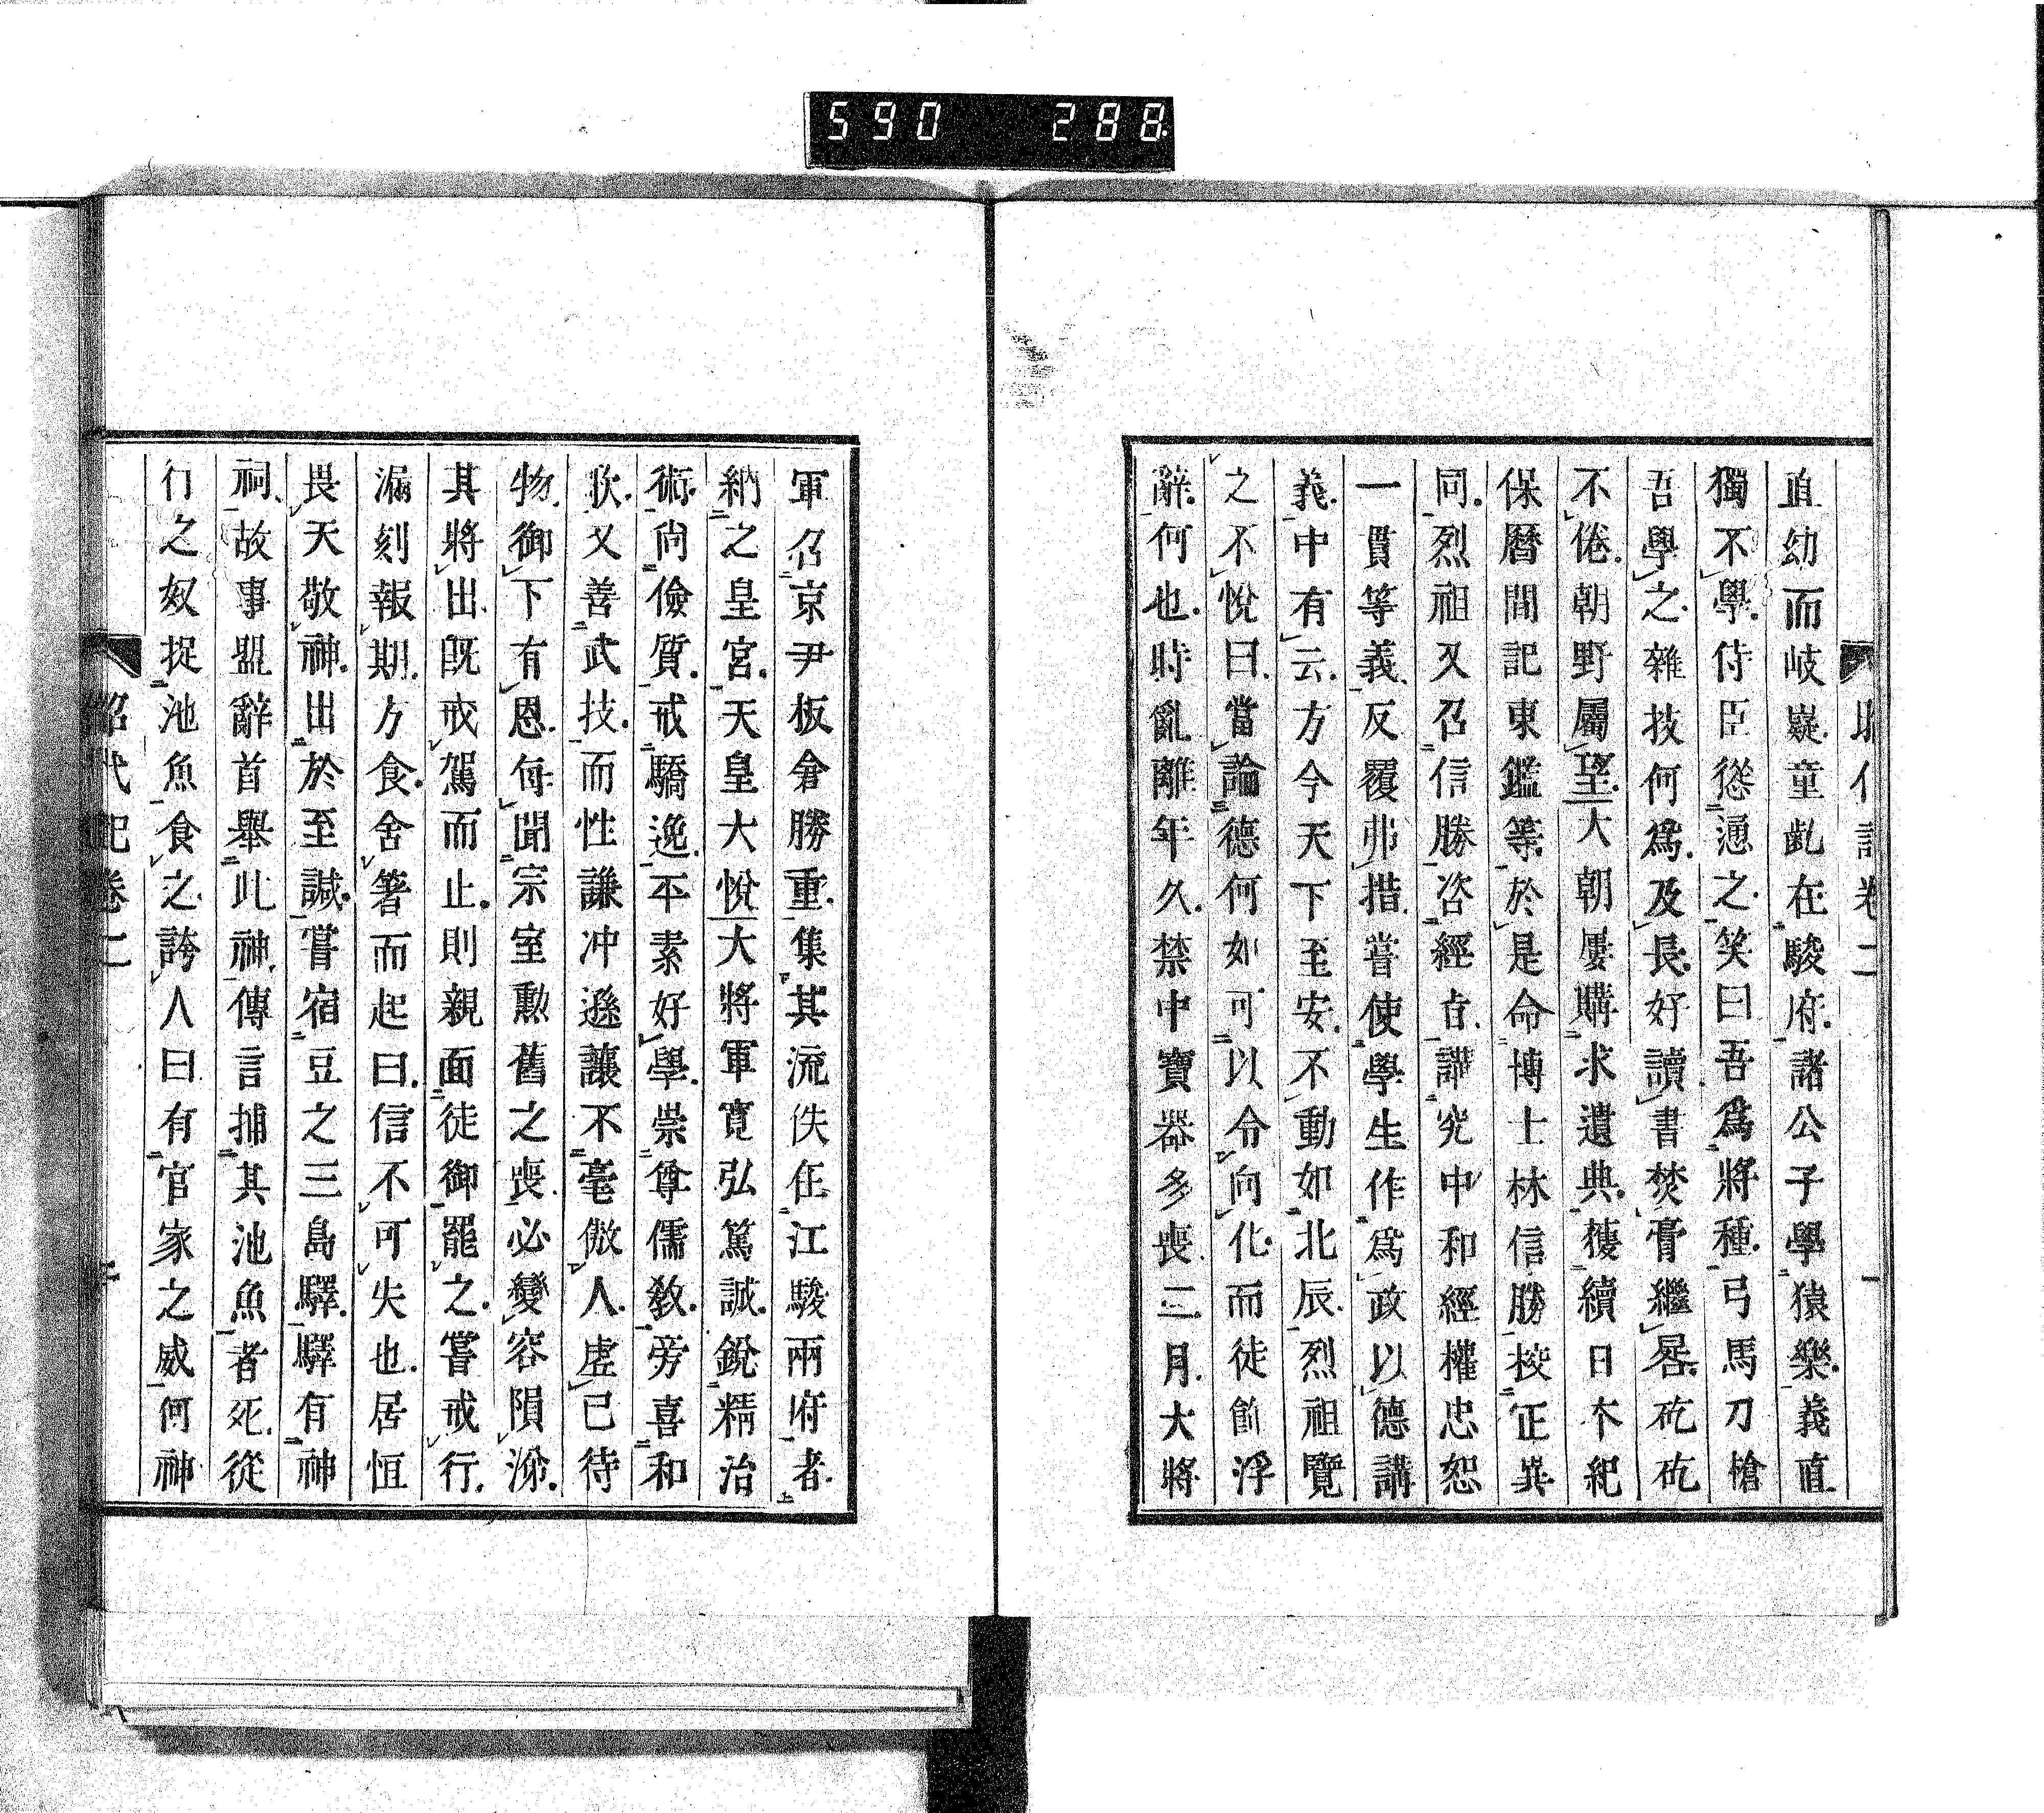 590 288
昭代記卷二
直幼而岐嶷童齔在駿府諸公子學猿樂義直
獨不學侍臣慫慂之笑曰吾爲將種弓馬刀槍
吾學之雜技何爲及長好讀書焚膏繼晷矻矻
不倦朝野屬望大朝屢購求遺典獲續日本紀
保曆間記東鑑等於是命博士林信勝挍正異
同烈祖又召信勝咨經旨講究中和經權忠恕
一貫等義反覆弗措嘗使學生作爲政以德講
義中有云方今天下至安不動如北辰烈祖覽
之不悅曰當論德何如可以令向化而徒飾浮
辭何也時亂離年久禁中寶器多喪二月大將
軍召京尹板倉勝重集其流佚在江駿兩府者
納之皇宮天皇大悅大將軍寬弘篤誠銳精治
術尚儉質戒驕逸平素好學崇尊儒教旁喜和
歌又善武技而性謙冲遜讓不毫傲人虛己待
物御下有恩每聞宗室勳舊之喪必變容隕涕
其將出既戒駕而止則親面徒御罷之嘗戒行
漏刻報期方食舍箸而起曰信不可失也居恒
畏天敬神出於至誠嘗宿豆之三島驛驛有神
祠故事盟辭首舉此神傳言捕其池魚者死從
行之奴捉池魚食之誇人曰有官家之威何神
昭代記卷二